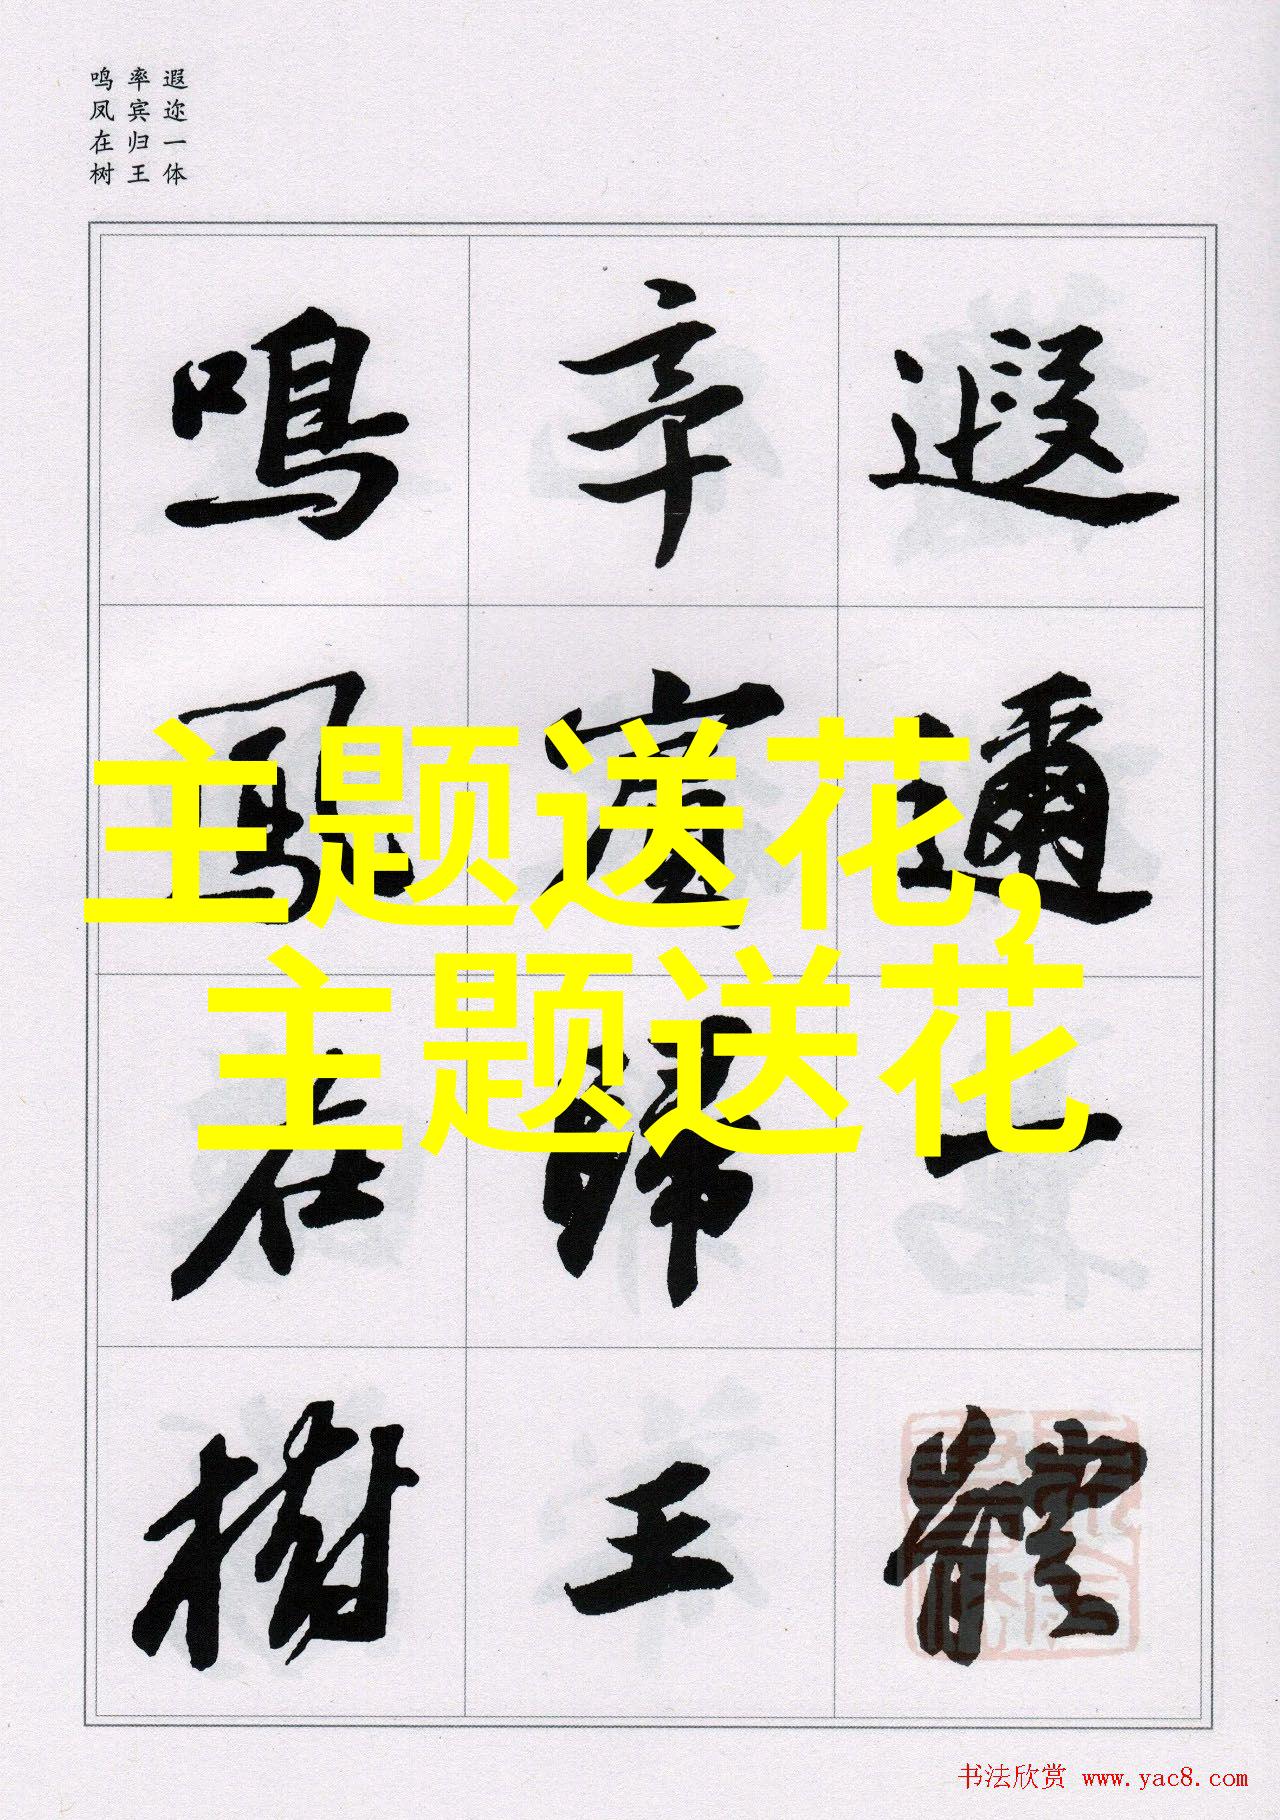 遐迩一体
率宾归王
鸣凤在树
遐邇一體
率賓歸王
鳴鳳在樹
主题送花,
主题送花
书法欣赏 www.yac8.com